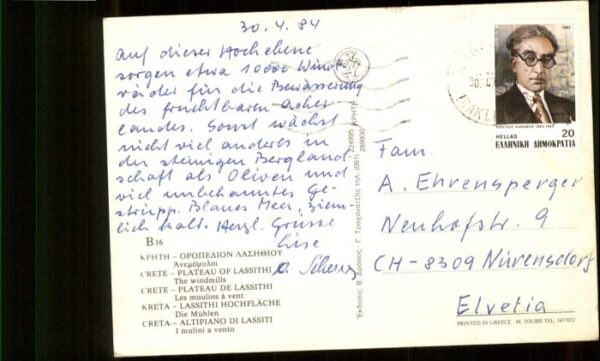 30.4.84
Auf dieser Hochebene
sorgen etwa 10000 Wind-
räder für die Bewässerung
des fruchtbaren Acker
landes. Sonst wächst
nicht viel anderes in
der steinigen Bergland-
schaft als Oliven und
viel unbekanntes Ge-
strüpp. Blaues Meer, ziem-
lich kalt. Herzl. Grüsse
B 16
ΚΡΗΤΗ – ΟΡΟΠΕΔΙΟΝ ΛΑΣΗΘΙΟΥ
Ἀνεμόμυλοι
CRETE – PLATEAU OF LASSITHI
The windmills
CRETE – PLATEAU DE LASSITHI
Les moulins à vent
KRETA – LASSITHI HOCHFLÄCHE
Die Mühlen
CRETA – ALTIPIANO DI LASSITI
I mulini a vento
HELLAS
20
ΕΛΛΗΝΙΚΗ ΔΗΜΟΚΡΑΤΙΑ
Fam.
A. Ehrensperger
Neuhofstr. 9
CH-8309 Nürensdorf
Elvetia
PRINTED IN GREECE M. TOUBIS